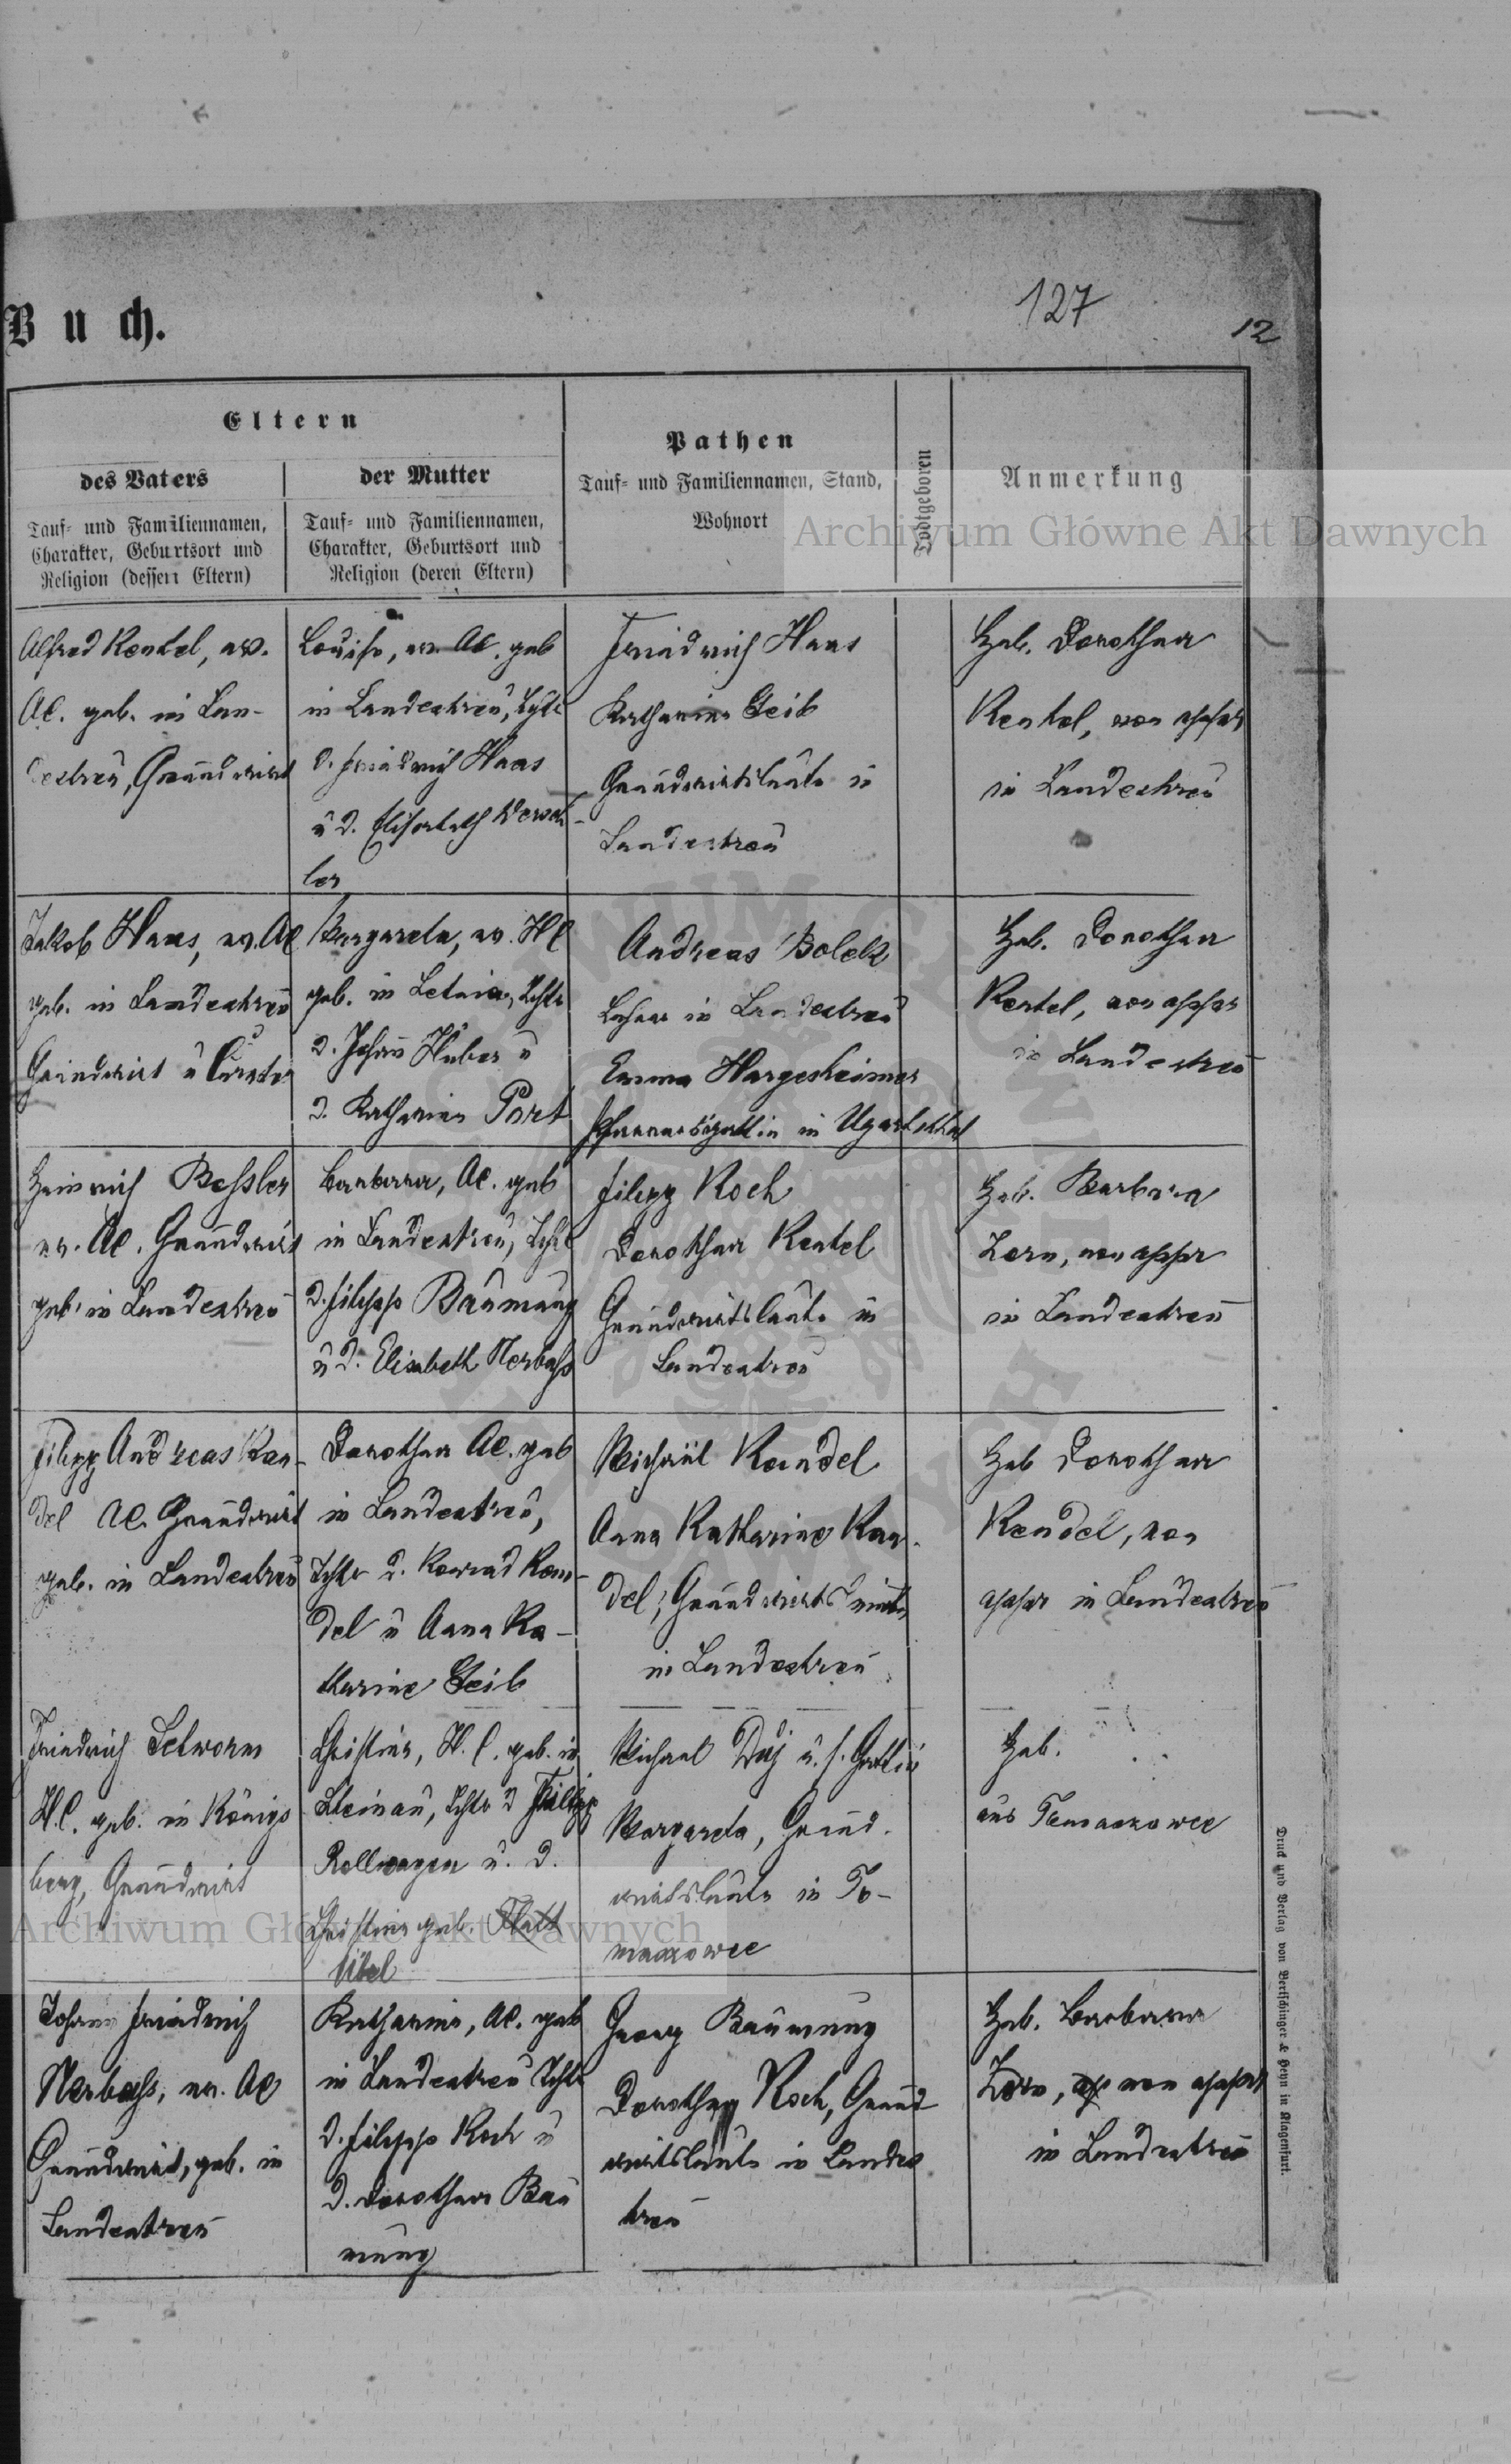 Buch.
127
12
Eltern
des Vaters
Tauf- und Familiennamen,
Charakter, Geburtsort und
Religion (dessen Eltern)
der Mutter
Tauf- und Familiennamen,
Charakter, Geburtsort und
Religion (deren Eltern)
Pathen
Tauf- und Familiennamen, Stand,
Wohnort
Todtgeboren
Anmerkung
Archiwum Główne Akt Dawnych
Alfred Rentel, ev.
AC. geb. in Lan-
destreu, Grundwirt
Louise, ev. AC. geb
in Landestreu, Tcht
d. Friedrich Haas
u d. Elisabeth
ler
Friedrich Haas
Katharina Geib
Grundwirtsleute in
Landestreu
Heb. Dorothea
Rentel, non appr
in Landestreu
Jakob Haas, ev. AC
geb. in Landestreu
Grundwirt u Curator
Margareta, ev. HC
geb. in Letnia, Tchtr
d. Johann Huber u
d. Katharina Port
Andreas Bolek
Lehrer in Landestreu
Emma Hargesheimer
Pfarrersgattin in Ugartsthal
Heb. Dorothea
Rentel, non appr
in Landestreu
Heinrich Bessler
ev. AC. Grundwirt
geb. in Landestreu
Barbara, AC. geb
in Landestreu, Tcht
d. Filipp Baumung
u d. Elisabeth Nerbass
Filipp Koch
Dorothea Rentel
Grundwirtsleute in
Landestreu
Heb. Barbara
Zorn, non appr
in Landestreu
Filipp Andreas Kan-
del AC. Grundwirt
geb. in Landestreu
Dorothea AC. geb
in Landestreu,
Tchtr d. Konrad Kan-
del u Anna Ka-
tharine Geib
Michael Kandel
Anna Katharine Kan-
del, Grundwirtsleute
in Landestreu
Heb Dorothea
Kendel, non
appr in Landestreu
Friedrich
H.C. geb. in Königs
berg, Grundwirt
Christina, H.C. geb. in
Steinau, Tchtr d Filipp
Rollwagen u. d.
Christina geb.
Ubel
Michael u. s. Gattin
Margareta, Grund-
wirtsleute in To-
maszowce
Heb.
aus Tomaszowce
Johann Friedrich
Nerbass, ev. AC
Grundwirt, geb. in
Landestreu
Katharina, AC. geb
in Landestreu Tchtr
d. Filipp Koch u
d. Dorothea Bau
mung
Georg Baumung
Dorothea Koch, Grund
wirtsleute in Landes
treu
Heb. Barbara
Zorn, non appr
in Landestreu
Archiwum Główne Akt Dawnych
Druck und Verlag von Bertschinger & Heyn in Klagenfurt.